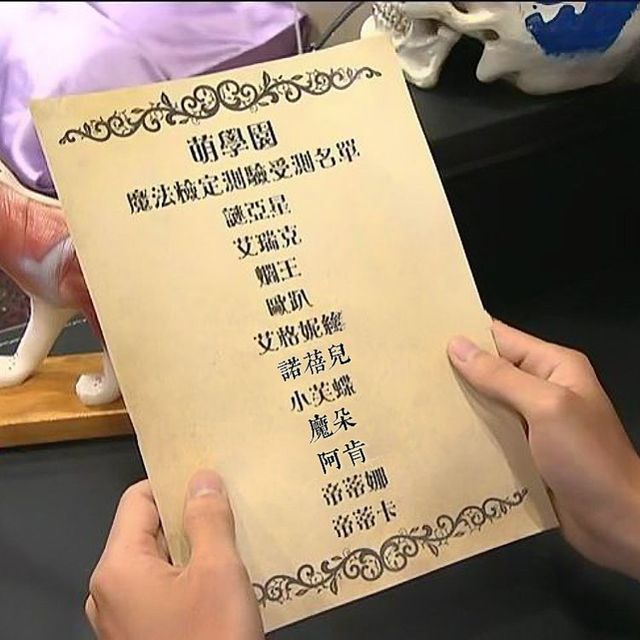 萌學園
魔法檢定測驗受測名單
謎亞星
艾瑞克
嫺王
歐趴
艾格妮絲
諾蓓兒
小芙蝶
魔朵
阿肯
帝蒂娜
帝蒂卡